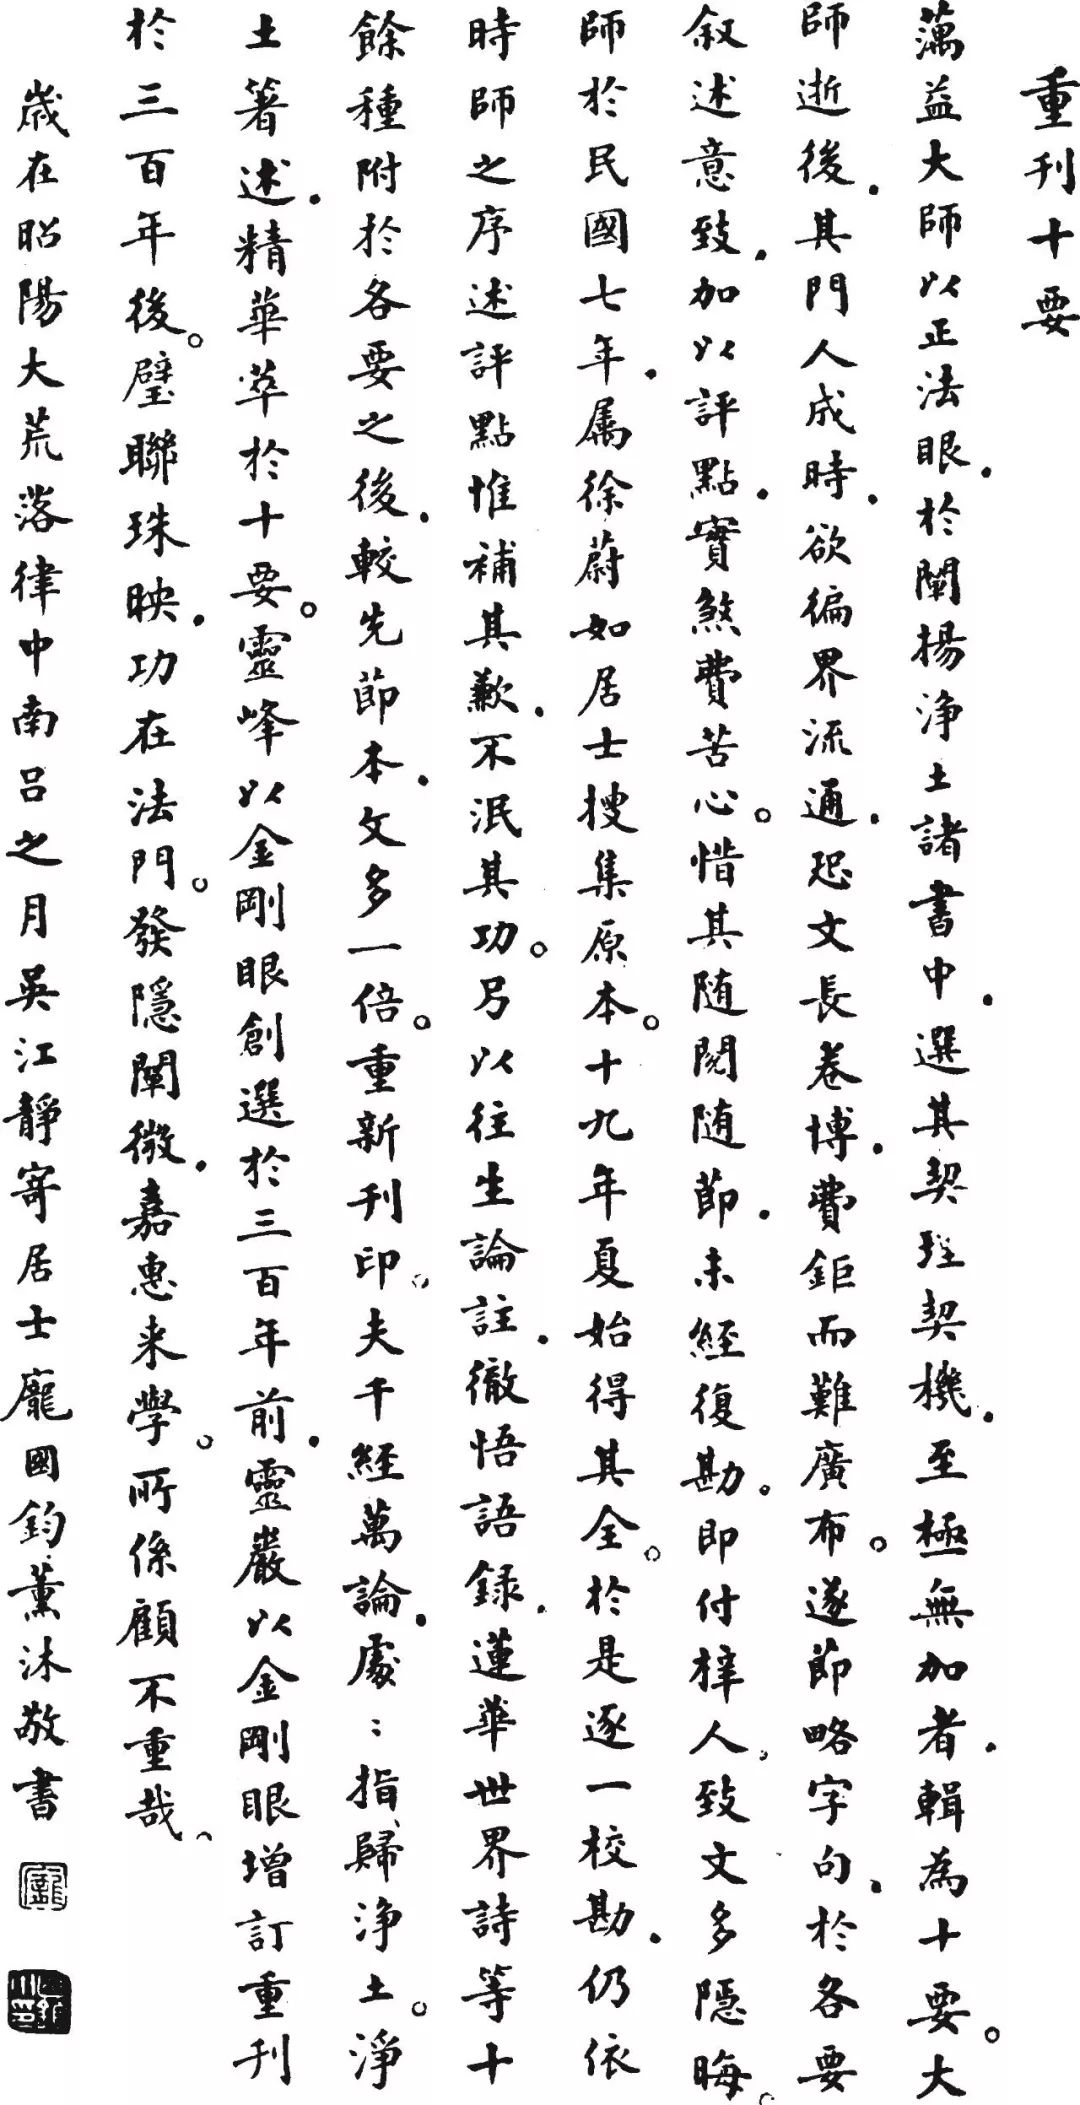 重刊十要
蕅益大師以正法眼．於闡揚淨土諸書中．選其契理契機．至極無加者．輯為十要。大
師逝後．其門人成時．欲徧界流通．恐文長卷博．費鉅而難廣布。遂節略字句．於各要
叙述意致．加以評點．實煞費苦心。惜其随閱随節．未經復勘。即付梓人．致文多隱晦。
師於民國七年．属徐蔚如居士搜集原本。十九年夏始得其全。於是逐一校勘．仍依
時師之序述評點惟補其歉．不泯其功。另以往生論註．徹悟語録．蓮華世界詩等十
餘種附於各要之後．較先節本．文多一倍。重新刊印。夫千經萬論．處：指歸淨土。淨
土著述．精華萃於十要。靈峰以金剛眼創選於三百年前．靈巖以金剛眼增訂重刊
於三百年後。璧聯珠映．功在法門。發隱闡微．嘉惠来學。所係顧不重哉。
歲在昭陽大荒落律中南呂之月吳江靜寄居士龐國鈞薰沐敬書